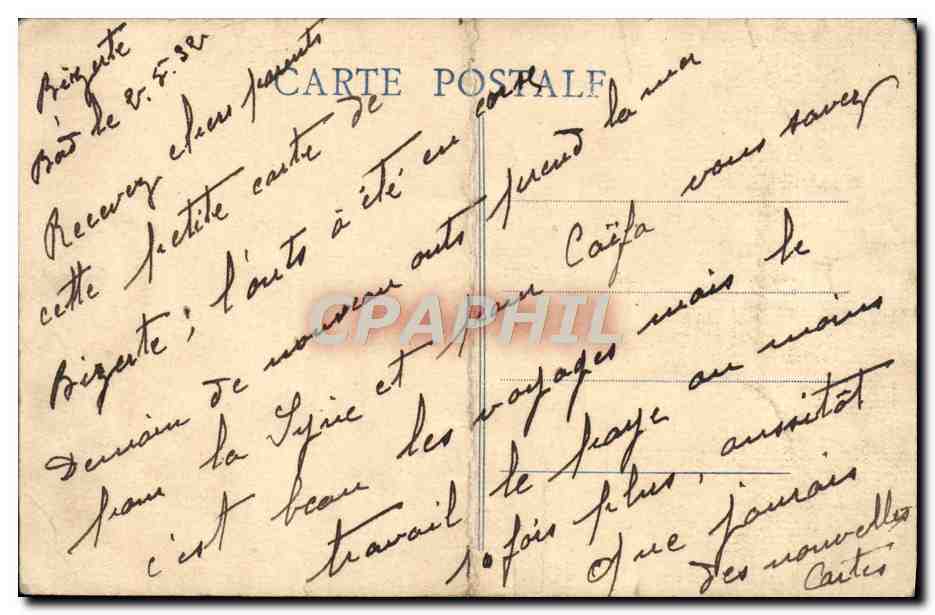 Bizerte
Bord le 2.5.32
CARTE POSTALE
Recevez chers parents
cette petite carte de
Bizerte, l'onts à été en corse
Demain de nouveau onts prend la mer
pour la Syrie et pour Caïfa vous savez
c'est beau les voyages mais le
travail le paye au moins
10 fois plus, aussitôt
que j'aurais
des nouvelles
Cartes
CPAPHIL